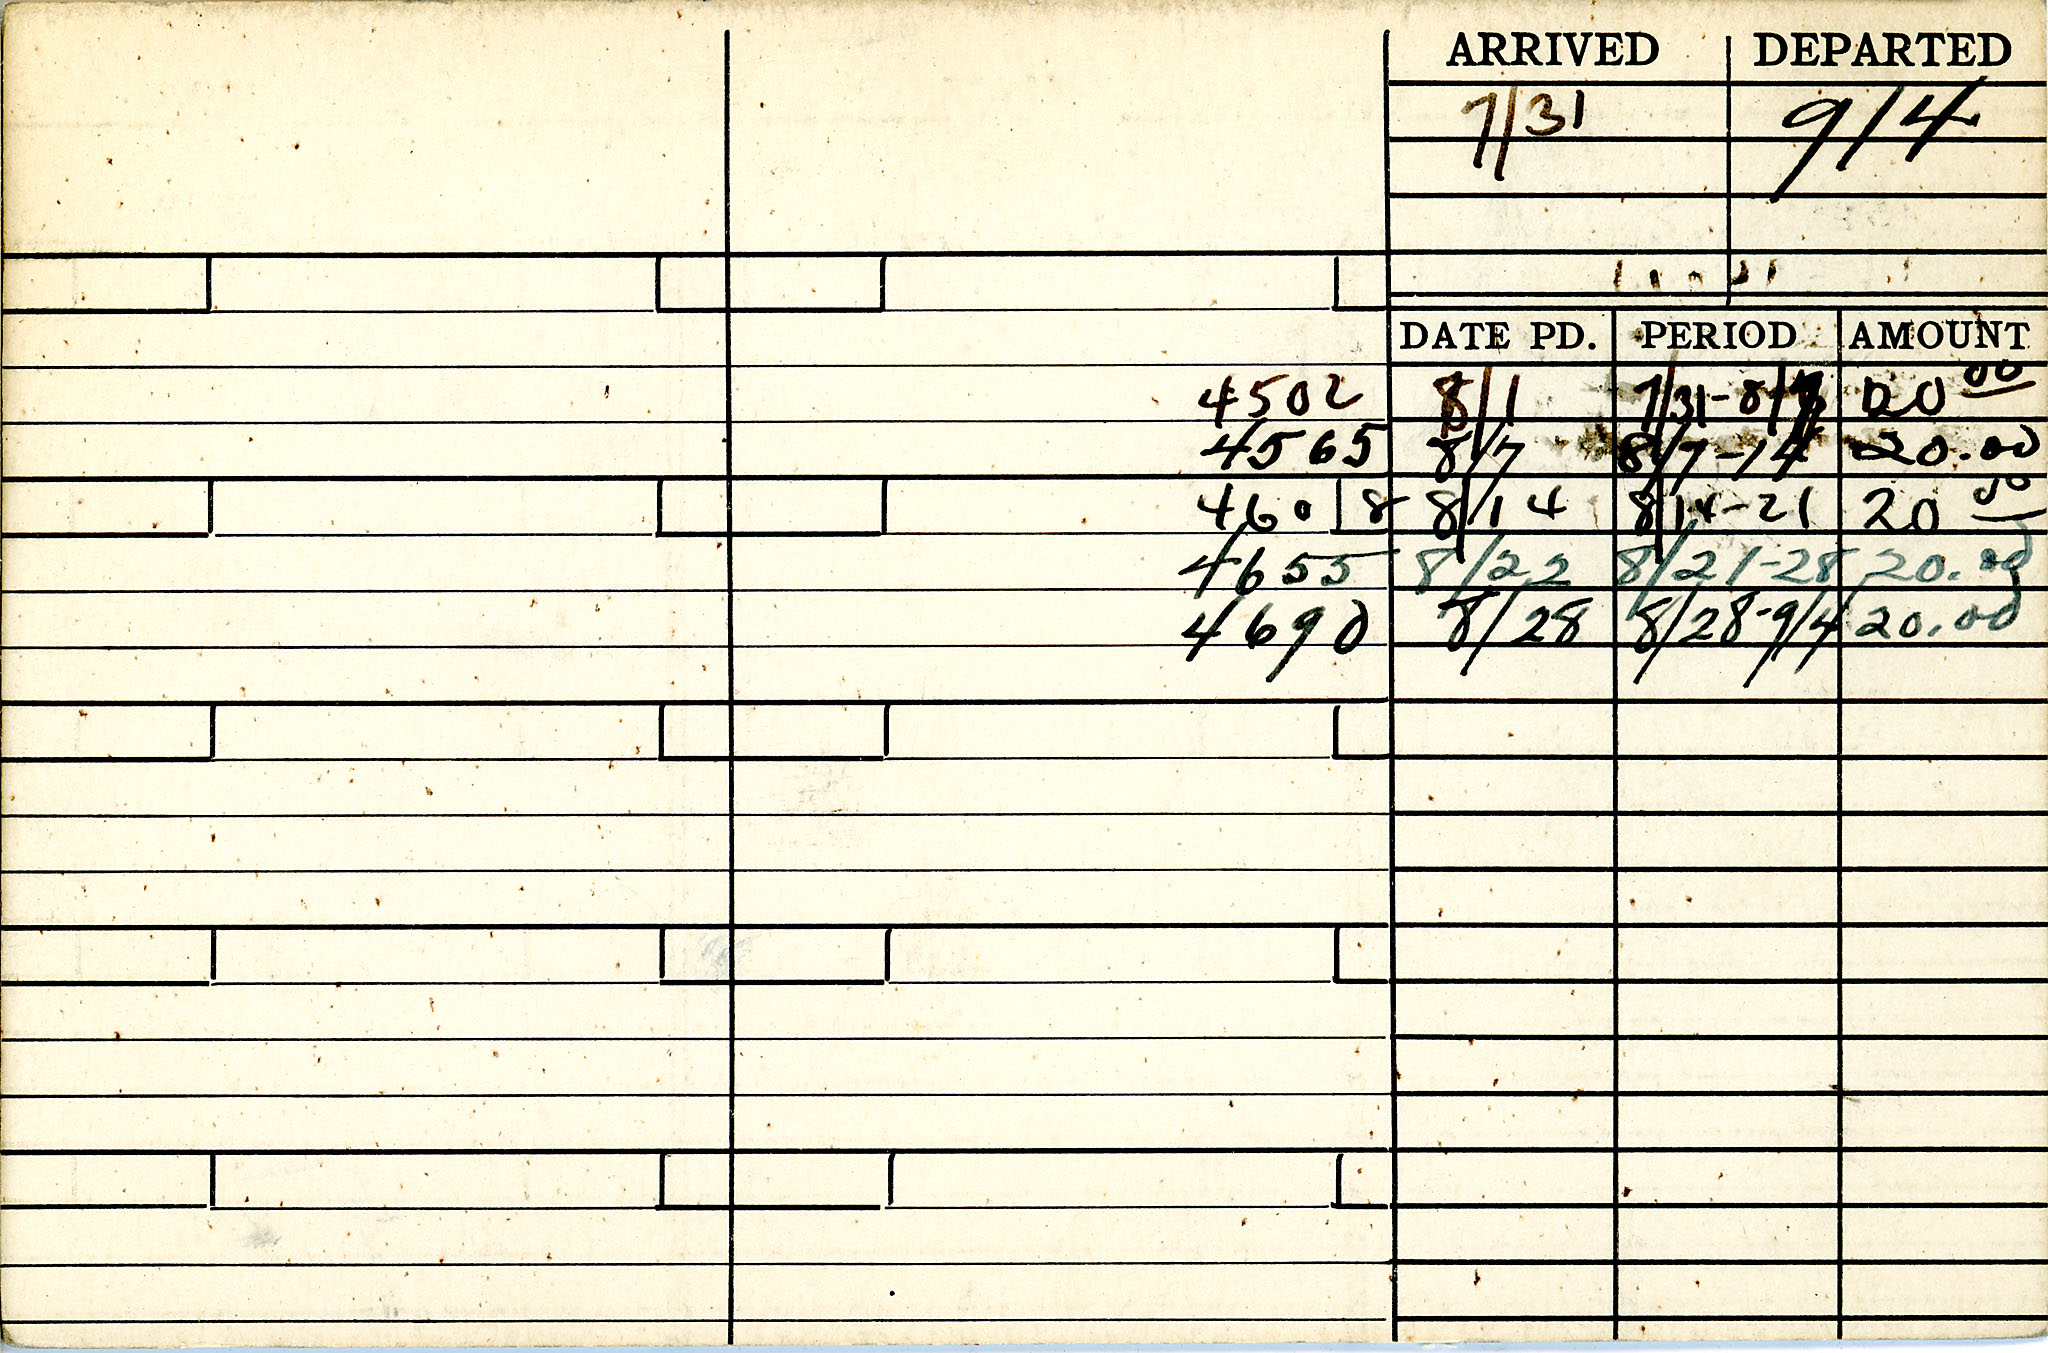 ARRIVED DEPARTED
7/31 9/4
DATE PD. PERIOD AMOUNT
4502 8/1 7/31-8/7 20 00
4565 8/7 8/7-14 20.00
46018 8/14 8/14-21 20 00
4655 8/22 8/21-28 20.00
4690 8/28 8/28-9/4 20.00